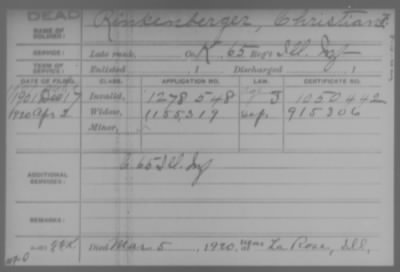 DEAD
NAME OF SOLDIER: Kinkenberger, Christian F.
SERVICE: Late rank, Co. K, 65 Reg't Ill. Inf
TERM OF SERVICE: Enlisted , 1 Discharged , 1
DATE OF FILING. CLASS. APPLICATION NO. LAW. CERTIFICATE NO.
1901 Dec 17 Invalid, 1278548 J 1050442
1920 Apr 2 Widow, 1155319 915306
Minor,
ADDITIONAL SERVICES: 65 Ill. Inf
REMARKS:
Died Mar. 5, 1920, at La Rose, Ill.